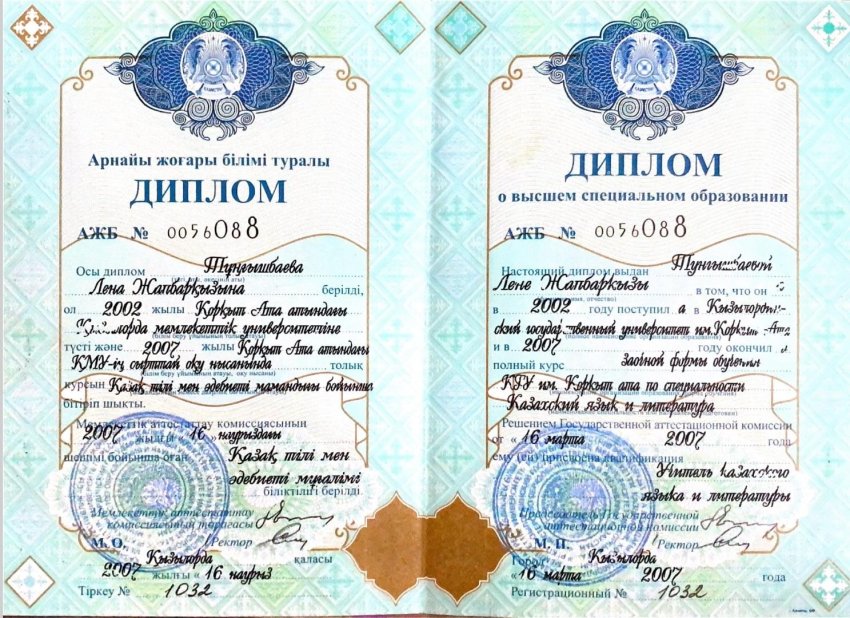 Арнайы жоғары білімі туралы
ДИПЛОМ
АЖБ № 0056088
Осы диплом Тұңғышбаева
Лена Жапбарқызына берілді,
ол 2002 жылы Қорқыт Ата атындағы
Қызылорда мемлекеттік университетіне
түсті және 2007 жылы Қорқыт Ата атындағы
ҚМУ-ің сырттай оқу нысанында толық
курсын Қазақ тілі мен әдебиеті мамандығы бойынша
бітіріп шықты.
Мемлекеттік аттестаттау комиссиясының
2007 жылғы « 16 » наурыздағы
шешімі бойынша оған Қазақ тілі мен
әдебиеті мұғалімі
біліктілігі берілді.
Мемлекеттік аттестаттау
комиссиясының төрағасы
М. О. Ректор
Қызылорда қаласы
2007 жылғы « 16 наурыз
Тіркеу № 1032
ДИПЛОМ
о высшем специальном образовании
АЖБ № 0056088
Настоящий диплом выдан Тунгышбаевой
Лене Жапбаркызы в том, что он
в 2002 году поступил а в Кызылордин-
ский государственный университет им. Коркыт Ата
и в 2007 году окончил а
полный курс заочной формы обучения
КГУ им. Коркыт ата по специальности
Казахский язык и литература
Решением Государственной аттестационной комиссии
от « 16 марта 2007 года
ему (ей) присвоена квалификация
Учитель казахского
языка и литературы
Председатель Государственной
аттестационной комиссии
М. П. Ректор
Город Кызылорда
« 16 марта 2007 года
Регистрационный № 1032